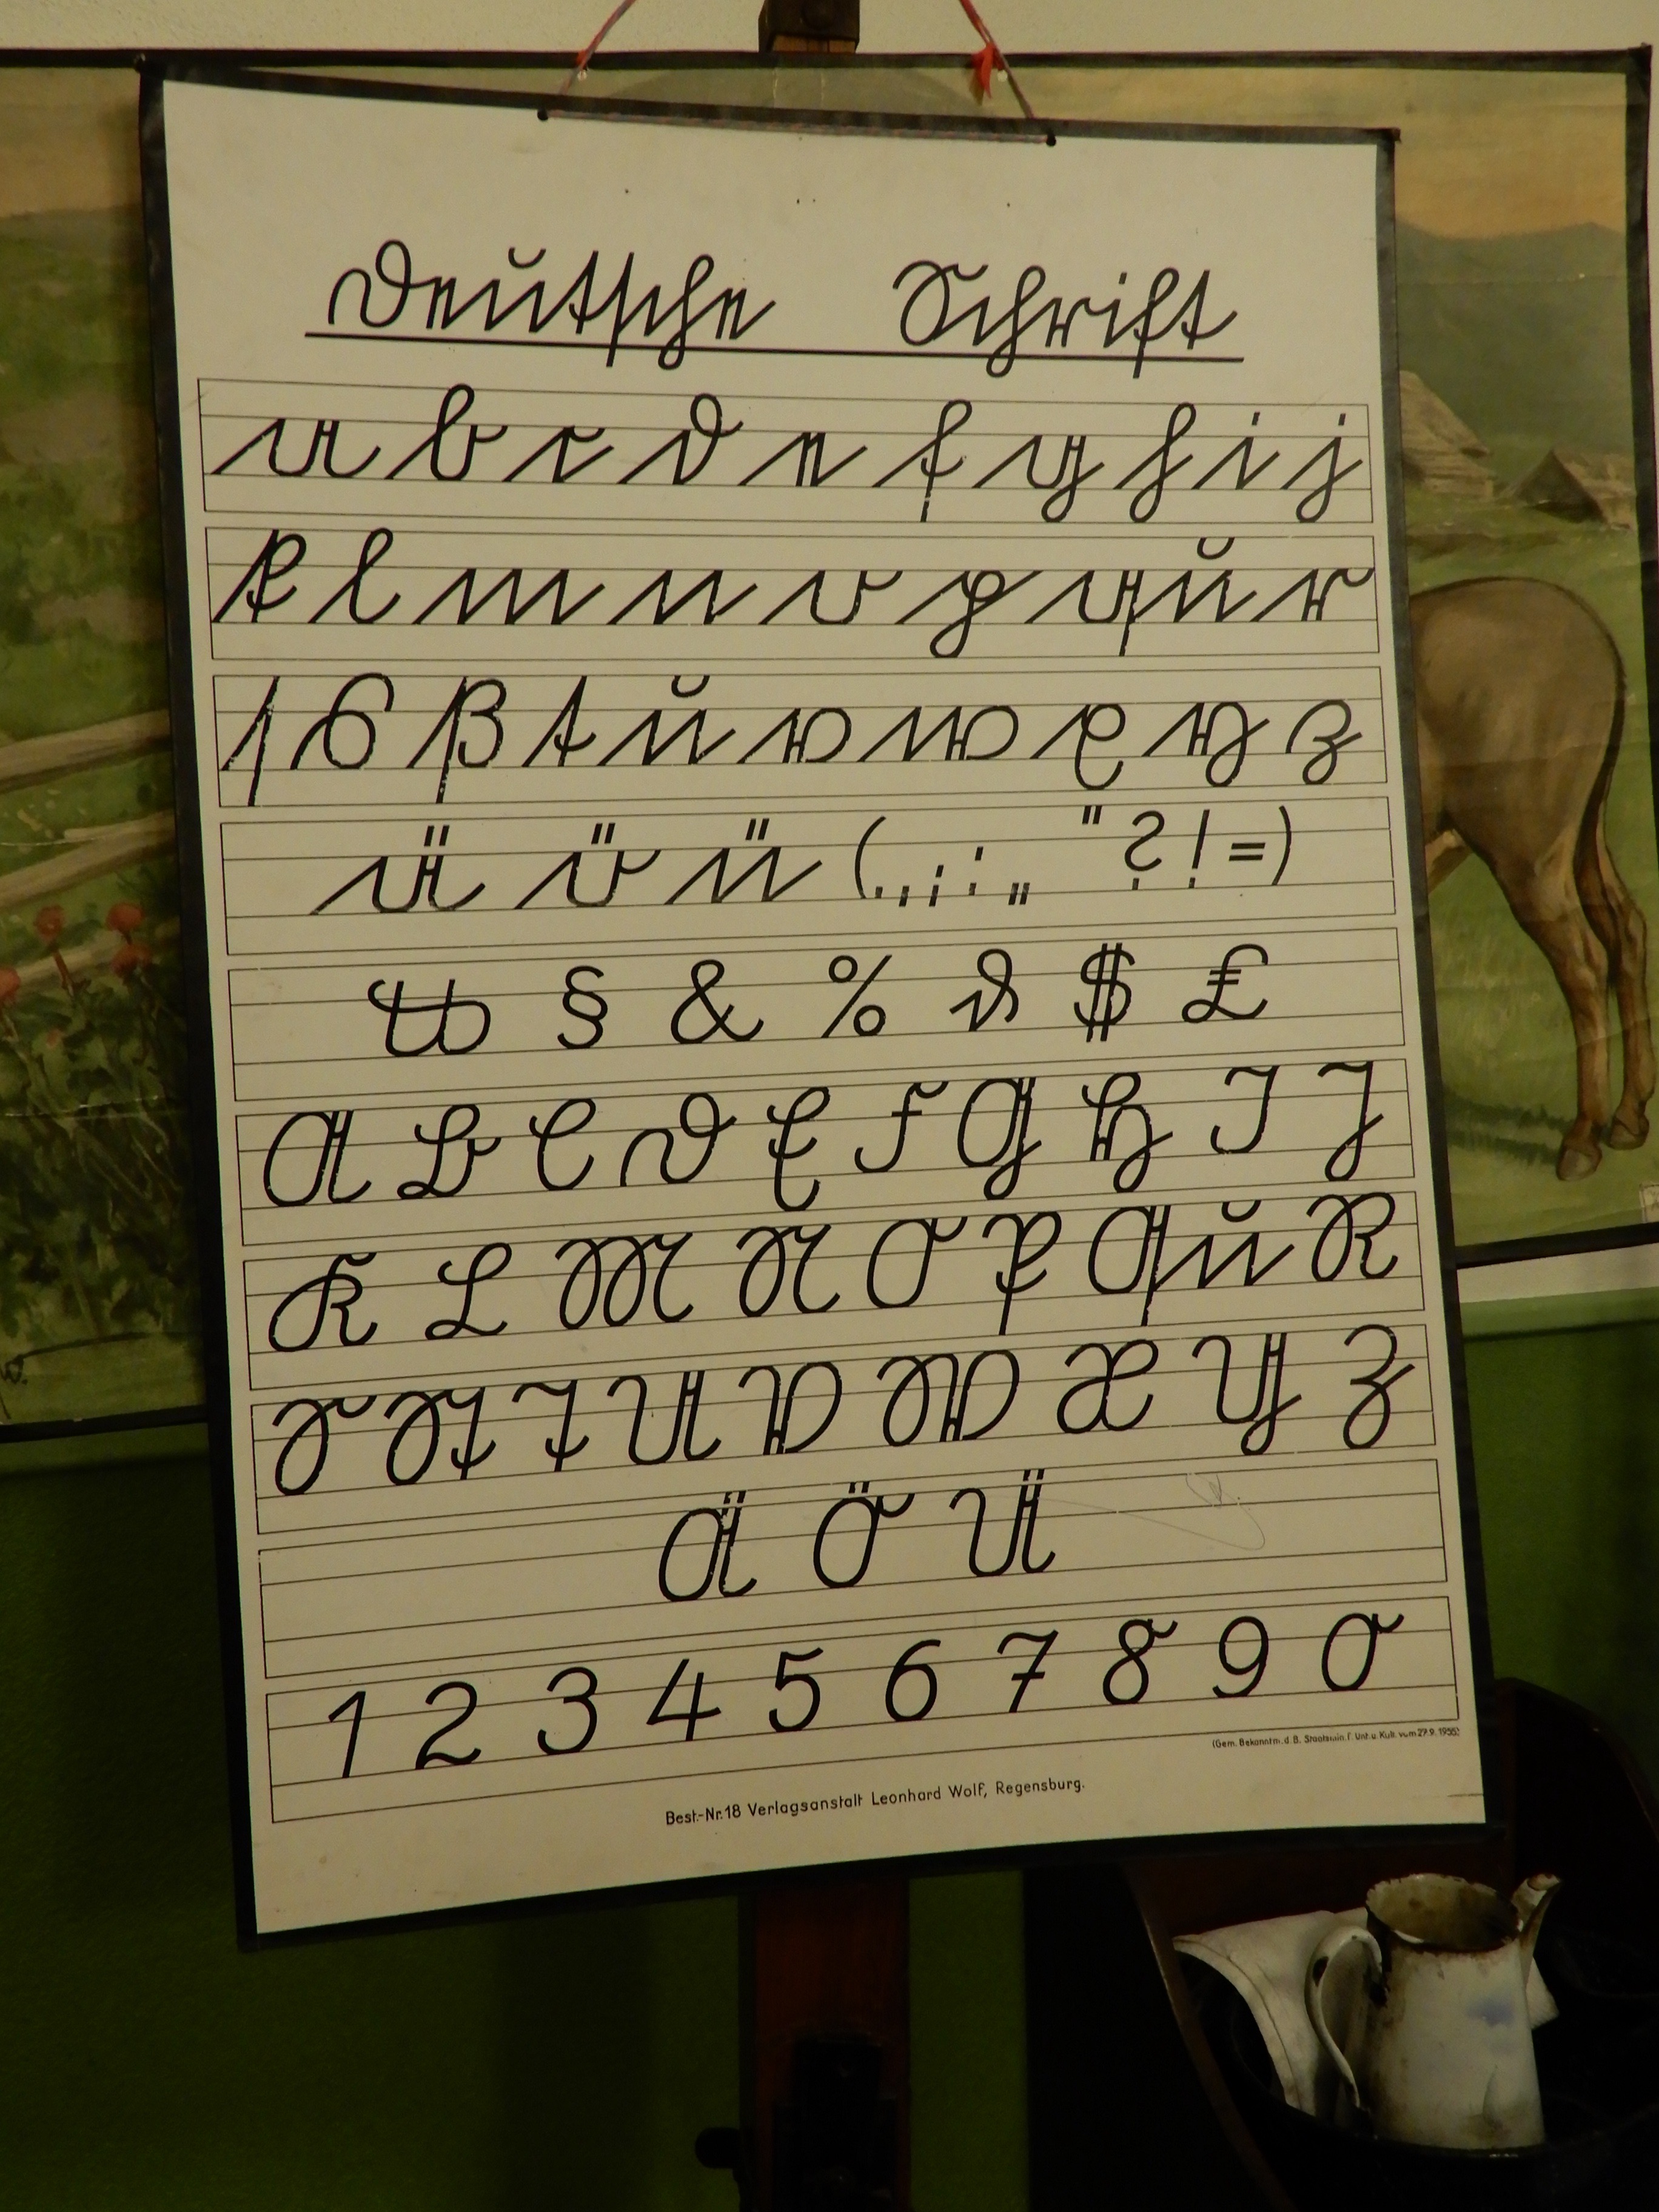 Deutsche Schrift
a b c d e f g h i j
k l m n o p qu r
ſ s ß t u v w x y z
ä ö ü ( . , ; : „ " ? ! = )
℔ § & % ₰ $ £
A B C D E F G H I J
K L M N O P Qu R
S St T U V W X Y Z
Ä Ö Ü
1 2 3 4 5 6 7 8 9 0
(Gem. Bekanntm. d. B. Staatsmin. f. Unt. u. Kult. vom 27.9.1955)
Best.-Nr. 18 Verlagsanstalt Leonhard Wolf, Regensburg.